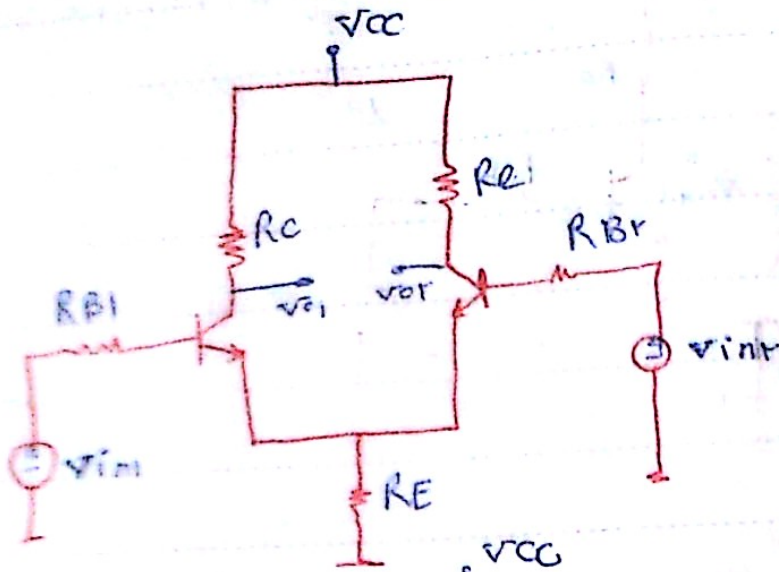 VCC
RC
Rc1
RBr
RB1
vo1
vor
vin1
vinr
RE
VCC